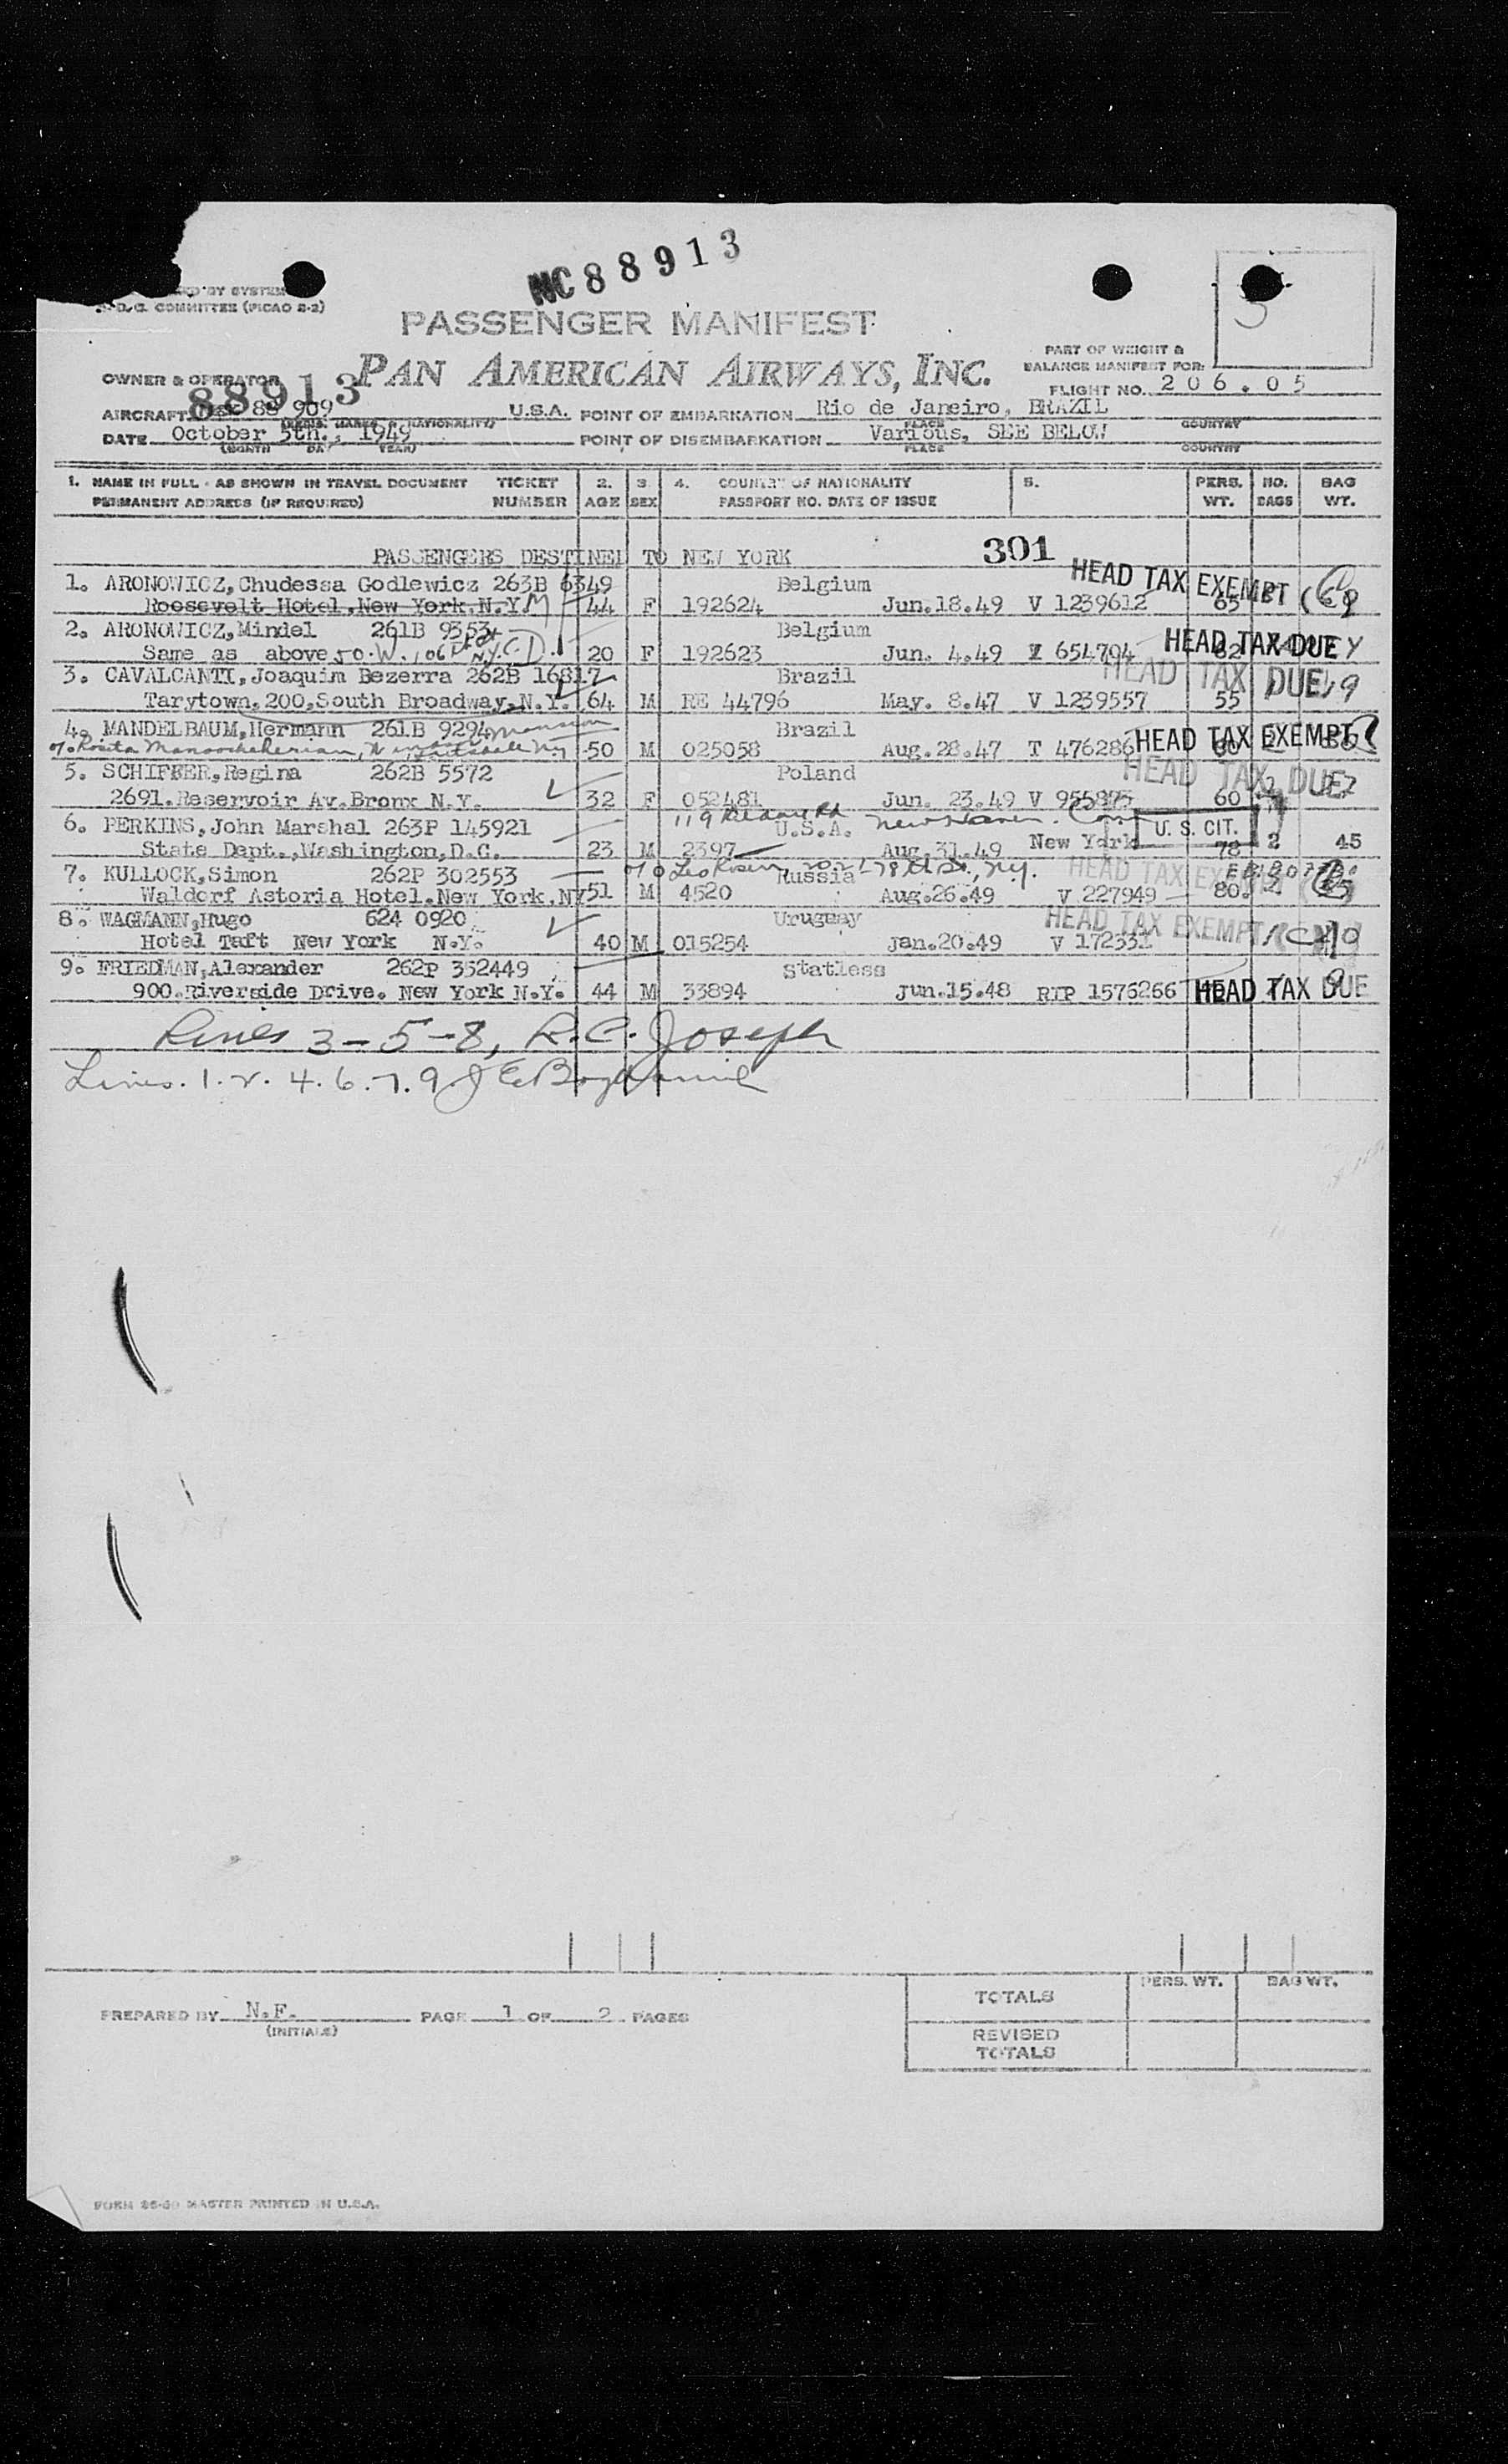 NC 88913
BY SYSTEM
COMMITTEE (PICAO 2-2)
PASSENGER MANIFEST
PAN AMERICAN AIRWAYS, INC.
PART OF WEIGHT &
BALANCE MANIFEST FOR:
OWNER & OPERATOR
FLIGHT NO. 206.05
88913
AIRCRAFT 88 909 U.S.A. POINT OF EMBARKATION Rio de Janeiro, BRAZIL
PLACE COUNTRY
DATE October 5th., 1949 POINT OF DISEMBARKATION Various, SEE BELOW
(MONTH DAY YEAR) PLACE COUNTRY
1. NAME IN FULL - AS SHOWN IN TRAVEL DOCUMENT TICKET 2. 3. 4. COUNTRY OF NATIONALITY 5. PERS. NO. BAG
PERMANENT ADDRESS (IF REQUIRED) NUMBER AGE SEX PASSPORT NO. DATE OF ISSUE WT. BAGS WT.
PASSENGERS DESTINED TO NEW YORK 301
1. ARONOWICZ, Chudessa Godlewicz 263B 6349 Belgium HEAD TAX EXEMPT
Roosevelt Hotel, New York, N.Y. 44 F 192624 Jun.18.49 V 1239612 65
2. ARONOWICZ, Mindel 261B 9353 Belgium HEAD TAX DUE
Same as above 50 W. 106th St N.Y.C. 20 F 192623 Jun. 4.49 654704 62
3. CAVALCANTI, Joaquim Bezerra 262B 16817 Brazil HEAD TAX DUE
Tarytown, 200, South Broadway, N.Y. 64 M RE 44796 May. 8.47 V 1239557 55
4. MANDELBAUM, Hermann 261B 9294 Brazil HEAD TAX EXEMPT
c/o Rosita 50 M 025058 Aug.28.47 T 476286
5. SCHIFFER, Regina 262B 5572 Poland HEAD TAX DUE
2691. Reservoir Av. Bronx N.Y. 32 F 052481 Jun. 23.49 V 955875 60
119 Rd New Haven. Conn
6. PERKINS, John Marshal 263P 145921 U.S.A. U. S. CIT.
State Dept., Washington, D.C. 23 M 2397 Aug.31.49 New York 78 2 45
c/o Leo Rosen 78th St., N.Y.
7. KULLOCK, Simon 262P 302553 Russia HEAD TAX EXEMPT
Waldorf Astoria Hotel. New York. NY 51 M 4520 Aug.26.49 V 227949 80. 2
8. WAGMANN, Hugo 624 0920 Uruguay HEAD TAX EXEMPT
Hotel Taft New York N.Y. 40 M 015254 Jan.20.49 V 172331
9. FRIEDMAN, Alexander 262P 352449 Statless
900. Riverside Drive. New York N.Y. 44 M 33894 Jun.15.48 RTP 1576266 HEAD TAX DUE
Lines 3-5-8, R.C. Joseph
Lines. 1. 2. 4. 6. 7. 9.
TOTALS PERS. WT. BAG WT.
PREPARED BY N.F. PAGE 1 OF 2 PAGES
(INITIALS)
REVISED
TOTALS
FORM MASTER PRINTED IN U.S.A.